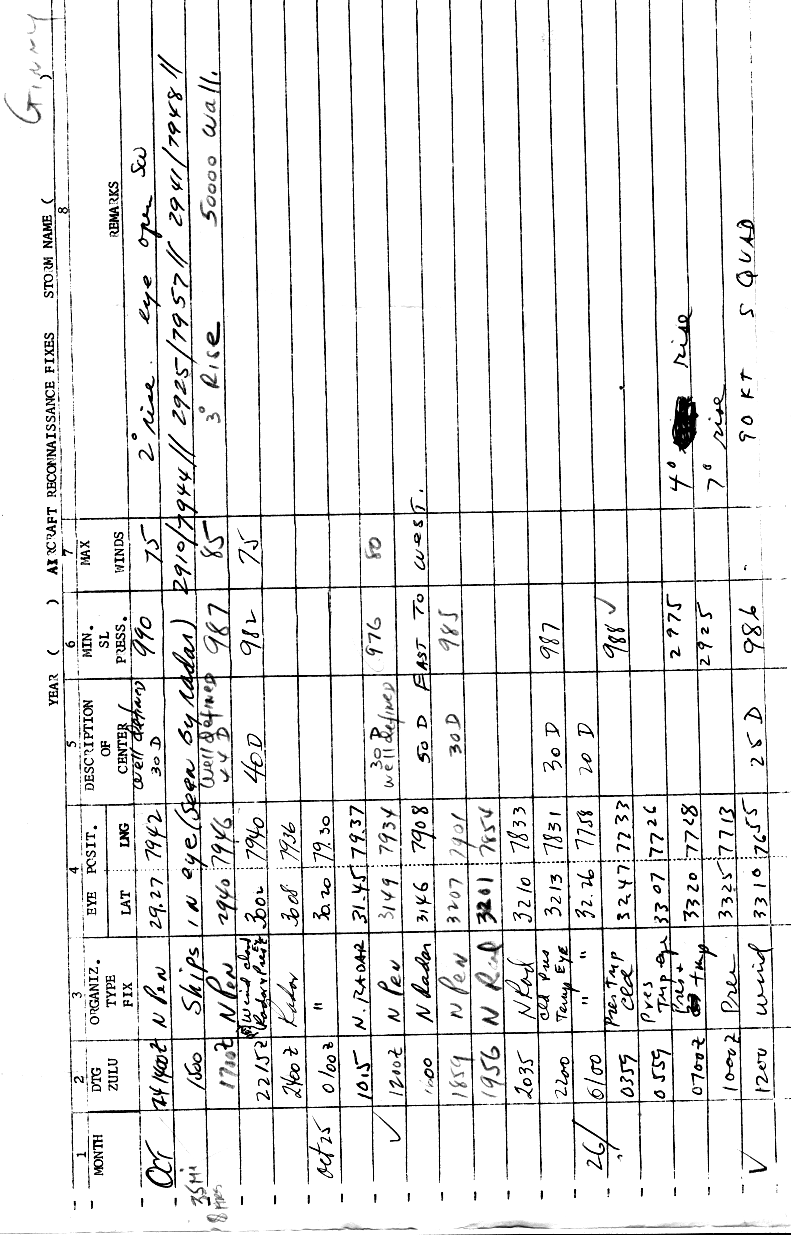 Ginny
YEAR ( ) AIRCRAFT RECONNAISSANCE FIXES STORM NAME (
1 2 3 4 5 6 7 8
MONTH DTG ZULU ORGANIZ. TYPE FIX EYE POSIT. LAT LNG DESCRIPTION OF CENTER MIN. SL PRESS. MAX WINDS REMARKS
Oct 24 1400Z N Pen 29.27 7942 well defined 30 D 990 75 2° rise. eye open SW
35 Mi 1500 Ships in eye (Seen by radar) 2910/7944// 2925/7957// 2941/7948//
1710Z N Pen 2940 7946 Well defined 44 D 987 85 3° Rise 50000 Wall.
2215Z Wind cloud Radar & Pres 3002 7940 40 D 982 75
2400Z Radar 3008 7936
Oct 25 0100Z " 30.20 79.30
1015 N. RADAR 31.45 79.37
✓ 1200Z N Pen 3149 7934 30 D well defined 976 80
N Radar 3146 7908 50 D EAST TO WEST.
1859 N Pen 3207 7901 30 D 985
1956 N Rad 3201 7854
2035 N Rad 3210 7833
2200 Cld Pres Temp Eye 3213 7831 30 D 987
26/ 0100 " " 32.26 7758 20 D
0359 Pres Tmp Cld 3247 7733 988 ✓
0559 Pres Tmp eye 3307 7726
0700Z Pres + tmp 3320 7728 2975 4° rise
1000Z Pres 3325 7713 2925 7° rise
✓ 1200 Wind 3310 7655 25 D 986 90 KT S QUAD